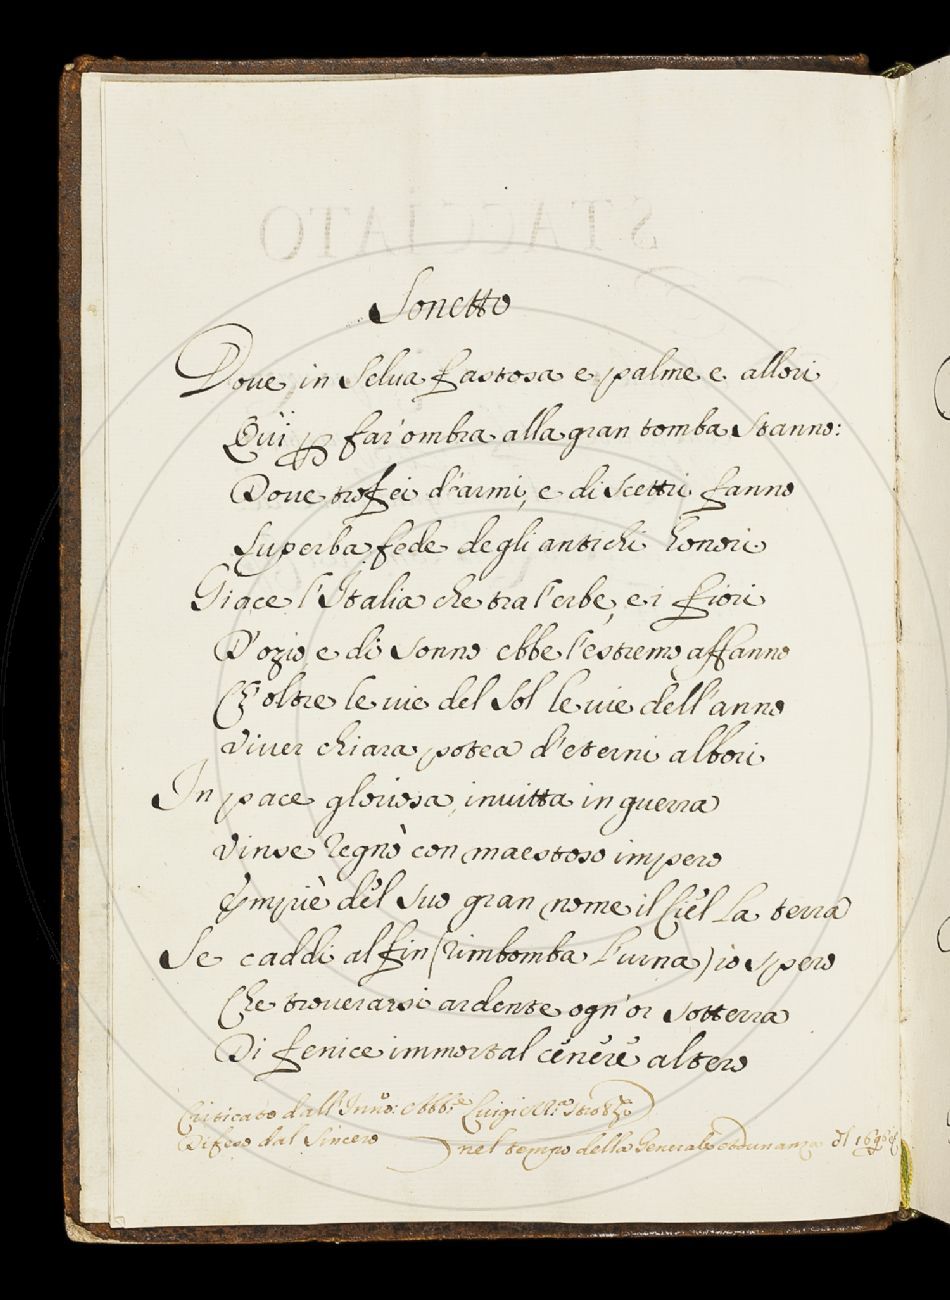 STACCIATO
Sonetto
Dove in Selva fastosa e palme e allori
Qui per far'ombra alla gran tomba stanno:
Dove trofei d'armi, e di scettri fanno
Superba fede degli antichi honori
Giace l'Italia che tra l'erbe, e i fiori
D'ozio, e di sonno ebbe l'estremo affanno
Ch'oltre le vie del Sol le vie dell'anno
Viver chiara potea d'eterni albori
In pace gloriosa, invitta in guerra
Vinse Regnò con maestoso impero
Empiè del suo gran nome il Ciel la terra
Se caddi al fin (rimbomba l'urna) io spero
Che troverassi ardente ogn'or sotterra
Di fenice immortal cenere altero
Criticato dall' Inno: Abb.e Luigi M.a Strozzi
Difeso dal Sincero nel tempo della Generale Adunanza dl